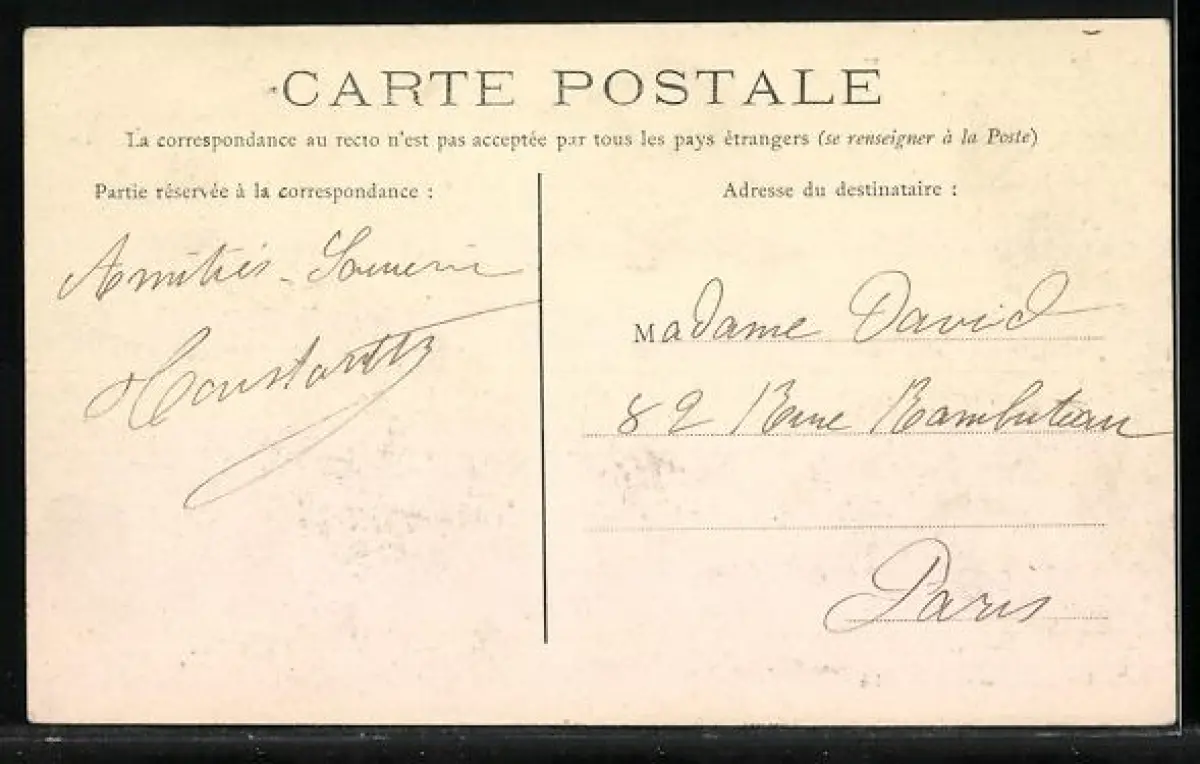 CARTE POSTALE
La correspondance au recto n'est pas acceptée par tous les pays étrangers (se renseigner à la Poste)
Partie réservée à la correspondance :
Amitiés -
Adresse du destinataire :
Madame David
82 Rue Rambuteau
Paris